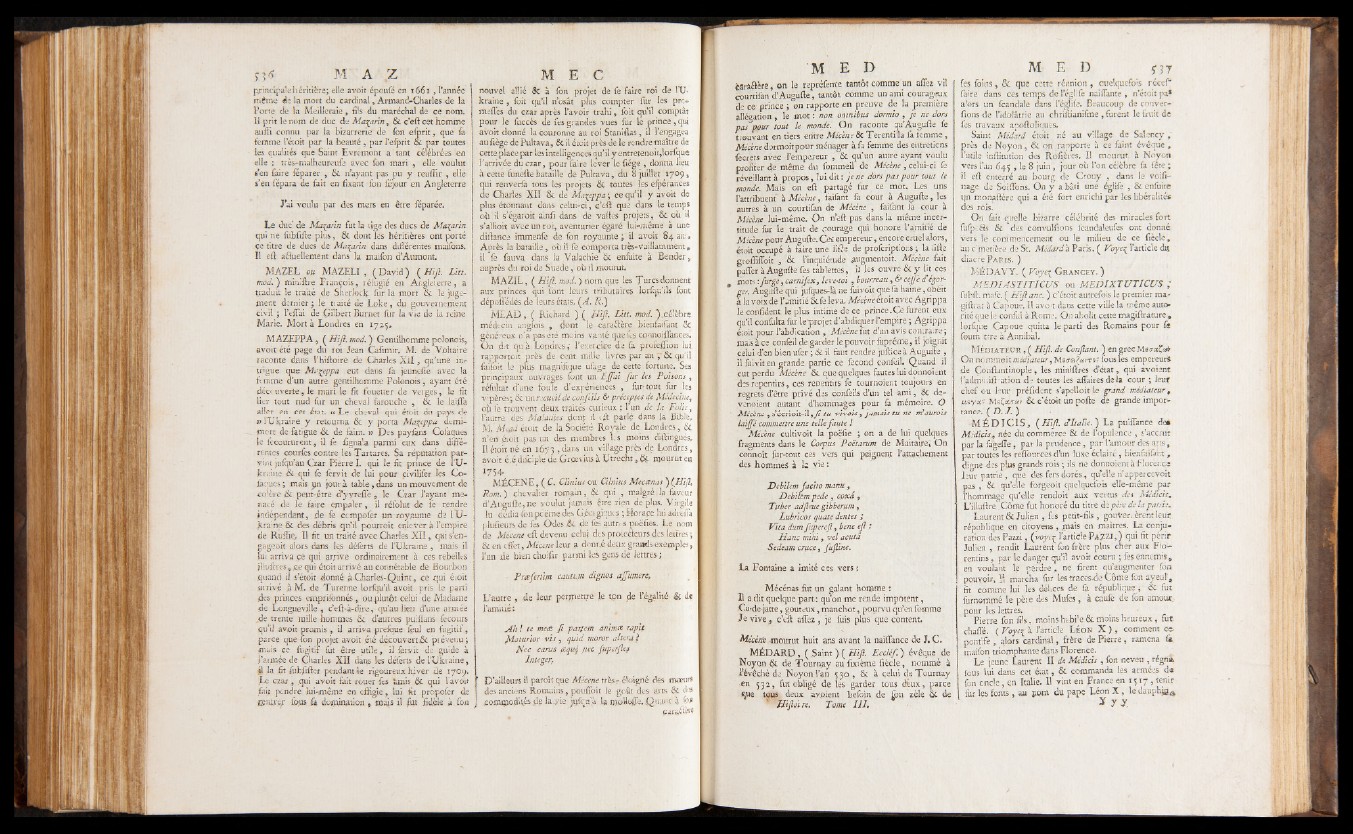 536 M A Z
principale héritière; elle avoir épousé en 1661, l'année
même de la mort du cardinal, Armand-Charles de la
Porte de la Meilleraie, fils du maréchal de ce nom.
Il prit le nom de duc de Mazarin, & c'est cet homme
aussi connu par la bizarrerie de son esprit, que sa
femme l'étoit par la beauté, par l'esprit & par toutes
les qualités que Saint Evremont a tant célébrées en
elle : très-malheureuse avec son mari, elle voulut
s'en faire séparer, & n'ayant pas pu y réussir, elle
s'en sépara de fait en fixant son séjour en Angleterre
J'ai voulu par des mers en être séparée.
Le duc de Mazarin fut la tige des ducs de Mazarin
qui ne subsiste plus, & dont les héritières ont porté
ce titre de ducs de Mazarin dans différentes maisons.
Il est actuellement dans la maison d'Aumont.
MAZEL ou MAZELI, (David) (Hist. Litt.
mod.) ministre François, réfugié en Angleterre, a
traduit le traité de Sherlock sur la mort & le juge-
ment dernier; le traité de Loke, du gouvernement
civil; l'essai de Gilbert Burnet sur la vie de la reine
Marie. Mort à Londres en 1725.
MAZEPPA, (Hist. mod.) Gentilhomme polonois,
avoit été page du roi Jean Casimir. M. de Voltaire
raconte dans l'histoire de Charles XII, qu'une in-
trigue que Mazeppa eut dans sa jeunesse avec la
femme d'un autre gentilhomme Polonois, ayant été
découverte, le mari le fit fouetter de verges, le fit
lier tout nud sur un cheval farouche, & le laissa
aller en cet état. « Le cheval qui étoit du pays de
» l'Ukraine y retourna & y porta Mazeppa demi-
mort de fatigue & de faim. » Des paysans Cosaques
le secoururent, il se signala parmi eux dans diffé-
rentes courses contre les Tartares. Sa réputation par-
vint jusqu'au Czar Pierre I. qui le fit prince de l'U-
kraine & qui se servit de lui pour civiliser les Co-
saques; mais un jour à table, dans un mouvement de
colère & peut-être d'yvresse, le Czar l'ayant me-
nacé de le faire empaler, il résolut de se rendre
indépendant, de se composer un royaume de l'U-
kraine & des débris qu'il pourroit enlever à l'empire
de Russie. Il fit un traité avec Charles XII, qui s'en-
gageoit alors dans les déserts de l'Ukraine, mais il
lui arriva ce qui arrive ordinairement à ces rebelles
illustres, ce qui étoit arrivé au connétable de Bourbon
quand il s'étoit donné à Charles-Quint, ce qui étoit
arrivé à M. de Turenne lorsqu'il avoit pris le parti
des princes emprisonnés, ou plutôt celui de Madame
de Longueville, c'est-à-dire, qu'au lieu d'une armée
de trente mille hommes & d'autres puissans secours
qu'il avoit promis, il arriva presque seul en fugitif,
parce que son projet avoit été découvert & prévenu;
mais ce fugitif fut être utile, il servit de guide à
l'armée de Charles XII dans les déserts de l'Ukraine,
il la fit subsister pendant le rigoureux hiver de 1709.
Le czar, qui avoit fait rouer ses amis & qui l'avoit
fait pendre lui-même en effigie, lui fit proposer de
rentrer sous sa domination, mais il fut fidèle à son
M E C
nouvel allié & à son projet de se faire roi de l'U-
kraine, soit qu'il n'osât plus compter sur les pro-
messes du czar après l'avoir trahi, soit qu'il comptât
pour le succès de ses grandes vues sur le prince, qui
avoit donné la couronne au roi Stanislas, il l'engagea
au siège de Pultava, & il étoit près de le rendre maître de
cette place par les intelligences qu'il y entretenoit, lorsque
l'arrivée du czar, pour faire lever le siège, donna lieu
à cette funeste bataille de Pultava, du 8 juillet 1709,
qui renversa tous les projets & toutes les espérances
de Charles XII & de Mazeppa; ce qu'il y avoit de
plus étonnant dans celui-ci, c'est que dans le temps
où il s'égaroit ainsi dans de vastes projets, & où il
s'alloit avec un roi, aventurer égaré lui-même à une
distance immense de son royaume; il avoit 84 ans.
Après la bataille, où il se comporta très-vaillamment,
il se sauva dans la Valachie & ensuite à Bender,
auprès du roi de Suede, où il mourut.
MAZIL, (Hist. mod.) nom que les Turcs donnent
aux princes qui sont leurs tributaires lorsqu'ils sont
dépossédés de leurs états. (A. R.)
MEAD, (Richard) (Hist. Litt. mod.) célèbre
médecin anglois, dont le caractère bienfaisant &
généreux n'a pas été moins vanté que ses connoissances.
On dit qu'à Londres, l'exercice de sa profession lui
rapportoit près de cent mille livres par an; & qu'il
faisoit le plus magnifique usage de cette fortune. Ses
principaux ouvrages sont un Essai sur les Poisons,
résultat d'une foule d'expériences, sur-tout sur les
vipères; & un recueil de conseils & préceptes de Médecine,
où se trouvent deux traités curieux; l'un de la Folie,
l'autre des Maladies dont il est parlé dans la Bible.
M. Mead étoit de la Société Royale de Londres, &
n'en étoit pas un des membres les moins distingués.
Il étoit né en 1673, dans un village près de Londres,
avoit été disciple de Grœvius à Utrecht, & mourut en
1754.
MÉCENE, (C. Cilnius ou Cilnius Mecænas) (Hist.
Rom.) chevalier romain, & qui, malgré la faveur
d'Auguste, ne voulut jamais être rien de plus. Virgile
lui dédia son poème des Géorgiques; Horace lui adressa
plusieurs de ses Odes & de ses autres poësies. Le nom
de Mécène est devenu celui des protecteurs des lettres;
& en effet, Mécène leur a donné deux grands exemples,
l'un de bien choisir parmi les gens de lettres;
Præsertim cautum dignos assumere,
L'autre, de leur permettre le ton de l'égalité & de
l'amitié:
Ah! te meæ si partem animæ rapit
Maturior vis, quid moror altera?
Nec carus æquè, nec superstes
Integer,
D'ailleurs il paroît que Mécène très-éloigné des mœurs
des anciens Romains, poussoit le goût des arts & des
commodités de la vie jusqu'à la mollesse. Quant à son
caractère
M E D
caractère, on le représente tantôt comme un assez vil
courtisan d'Auguste, tantôt comme un ami courageux
de ce prince; on rapporte en preuve de la première
allégation, le mot: non omnibus dormio, je ne dors
pas pour tout le monde. On raconte qu'Auguste se
trouvant en tiers entre Mécène & Terentilla sa femme,
Mécène dormoit pour ménager à sa femme des entretiens
secrets avec l'empereur, & qu'un autre ayant voulu
profiter de même du sommeil de Mécène, celui-ci se
réveillant à propos, lui dit: je ne dors pas pour tout le
monde. Mais on est partagé sur ce mot. Les uns
l'attribuent à Mécène, faisant sa cour à Auguste, les
autres à un courtisan de Mécène, faisant sa cour à
Mécène lui-même. On n'est pas dans la même incer-
titude sur le trait de courage qui honore l'amitié de
Mécène pour Auguste. Cet empereur, encore cruel alors,
étoit occupé à faire une liste de proscriptions; la liste
grossissoit, & l'inquiétude augmentoit. Mécène fait
passer à Auguste ses tablettes, il les ouvre & y lit ces
mots: surge, carnifex, leve-toi, bourreau, & cesse d'égor-
ger. Auguste qui jusques-là ne suivoit que sa haine, obéit
à la voix de l'amitié & se leva. Mécène étoit avec Agrippa
le confident le plus intime de ce prince. Ce furent eux
qu'il consulta sur le projet d'abdiquer l'empire; Agrippa
étoit pour l'abdication, Mécène fut d'un avis contraire;
mais à ce conseil de garder le pouvoir suprême, il joignit
celui d'en bien user; & il faut rendre justice à Auguste,
il suivit en grande partie ce second conseil. Quand il
eut perdu Mécène & que quelques fautes lui donnoient
des repentirs, ces repentirs se tournoient toujours en
regrets d'être privé des conseils d'un tel ami, & de-
venoient autant d'hommages pour sa mémoire. O
Mécène, s'écrioit-il, si tu vivois, jamais tu ne m'aurois
laissé commettre une telle faute!
Mécène cultivoit la poësie; on a de lui quelques
fragments dans le Corpus Poëtarum de Maitaire; On
connoît sur-tout ces vers qui peignent l'attachement
des hommes à la vie:
Debilem facito manu,
Debilem pede, coxâ,
Tuber adstrue gibberum,
Lubricos quate dentes;
Vita dum superest, bene est:
Hanc mihi, vel acutâ
Sedeam cruce, sustine.
La Fontaine a imité ces vers:
Mécénas fut un galant homme:
Il a dit quelque part: qu'on me rende impotent,
Cu-de-jatte, gouteux, manchot, pourvu qu'en somme
Je vive, c'est assez, je suis plus que content.
Mécène mourut huit ans avant la naissance de J. C.
MÉDARD, (Saint) (Hist. Ecclés.) évêque de
Noyon & de Tournay au sixième siècle, nommé à
l'évêché de Noyon l'an 530, & à celui de Tournay
en 532, fut obligé de les garder tous deux, parce
que tous deux avoient besoin de son zèle & de
Histoire. Tome III.
M E D 537
ses soins, & que cette réunion, quelquefois néces-
saire dans ces temps de l'église naissante, n'étoit pas
alors un scandale dans l'église. Beaucoup de conver-
sions de l'idolâtrie au christianisme, furent le fruit de
ses travaux apostoliques.
Saint Médard étoit né au village de Salency,
près de Noyon, & on rapporte à ce saint évêque,
l'utile institution des Rosières. Il mourut à Noyon
vers l'an 645, le 8 juin, jour où l'on célèbre sa fête;
il est enterré au bourg de Crouy, dans le voisi-
nage de Soissons. On y a bâti une église, & ensuite
un monastère qui a été fort enrichi par les libéralités
des rois.
On sait quelle bizarre célébrité des miracles fort
suspects & des convulsions scandaleuses ont donné
vers le commencement ou le milieu de ce siècle,
au cimetière de St. Médard à Paris. (Voyez l'article du
diacre PARIS.)
MÉDAVY. (Voyez GRANCEY.)
MEDIASTITICUS ou MEDIXTUTICUS,
subst. masc. (Hist. anc.) c'étoit autrefois le premier ma-
gistrat à Capoue. Il avoit dans cette ville la même auto-
rité que le consul à Rome. On abolit cette magistrature,
lorsque Capoue quitta le parti des Romains pour se
soumettre à Annibal.
MÉDIATEUR, (Hist. de Constant.) en grec
On nommoit médiateur, tous les empereurs
de Constantinople, les ministres d'état, qui avoient
l'administration de toutes les affaires de la cour; leur
chef ou leur président s'appelloit le grand médiateur,
& c'étoit un poste de grande impor-
tance. (D. J.)
MÉDICIS, (Hist. d'Italie.) La puissance des
Médicis, née du commerce & de l'opulence, s'accrut
par la sagesse, par la prudence, par l'amour des arts,
par toutes les ressources d'un luxe éclairé, bienfaisant,
digne des plus grands rois; ils ne donnoient à Florence
leur patrie, que des fers dorés, qu'elle n'appercevoit
pas, & qu'elle forgeoit quelquefois elle-même par
l'hommage qu'elle rendoit aux vertus des Médicis.
L'illustre Côme fut honoré du titre de père de la patrie.
Laurent & Julien, ses petit-fils, gouvernèrent leur
république en citoyens, mais en maîtres. La conju-
ration des Pazzi, (voyez l'article PAZZI,) qui fit périr
Julien, rendit Laurent son frère plus cher aux Flo-
rentins, par le danger qu'il avoit couru; ses ennemis,
en voulant le perdre, ne firent qu'augmenter son
pouvoir. Il marcha sur les traces de Côme son ayeul,
fit comme lui les délices de sa république, & fut
surnommé le père des Muses, à cause de son amour
pour les lettres.
Pierre son fils, moins habile & moins heureux, fut
chassé. (Voyez à l'article LÉON X), comment ce
pontife, alors cardinal, frère de Pierre, ramena sa
maison triomphante dans Florence.
Le jeune Laurent II de Médicis, son neveu, régna
sous lui dans cet état, & commanda les armées de
son oncle, en Italie. Il vint en France en 1517, tenir
sur les fonts, au nom du pape Léon X, le dauphin,
Y y y